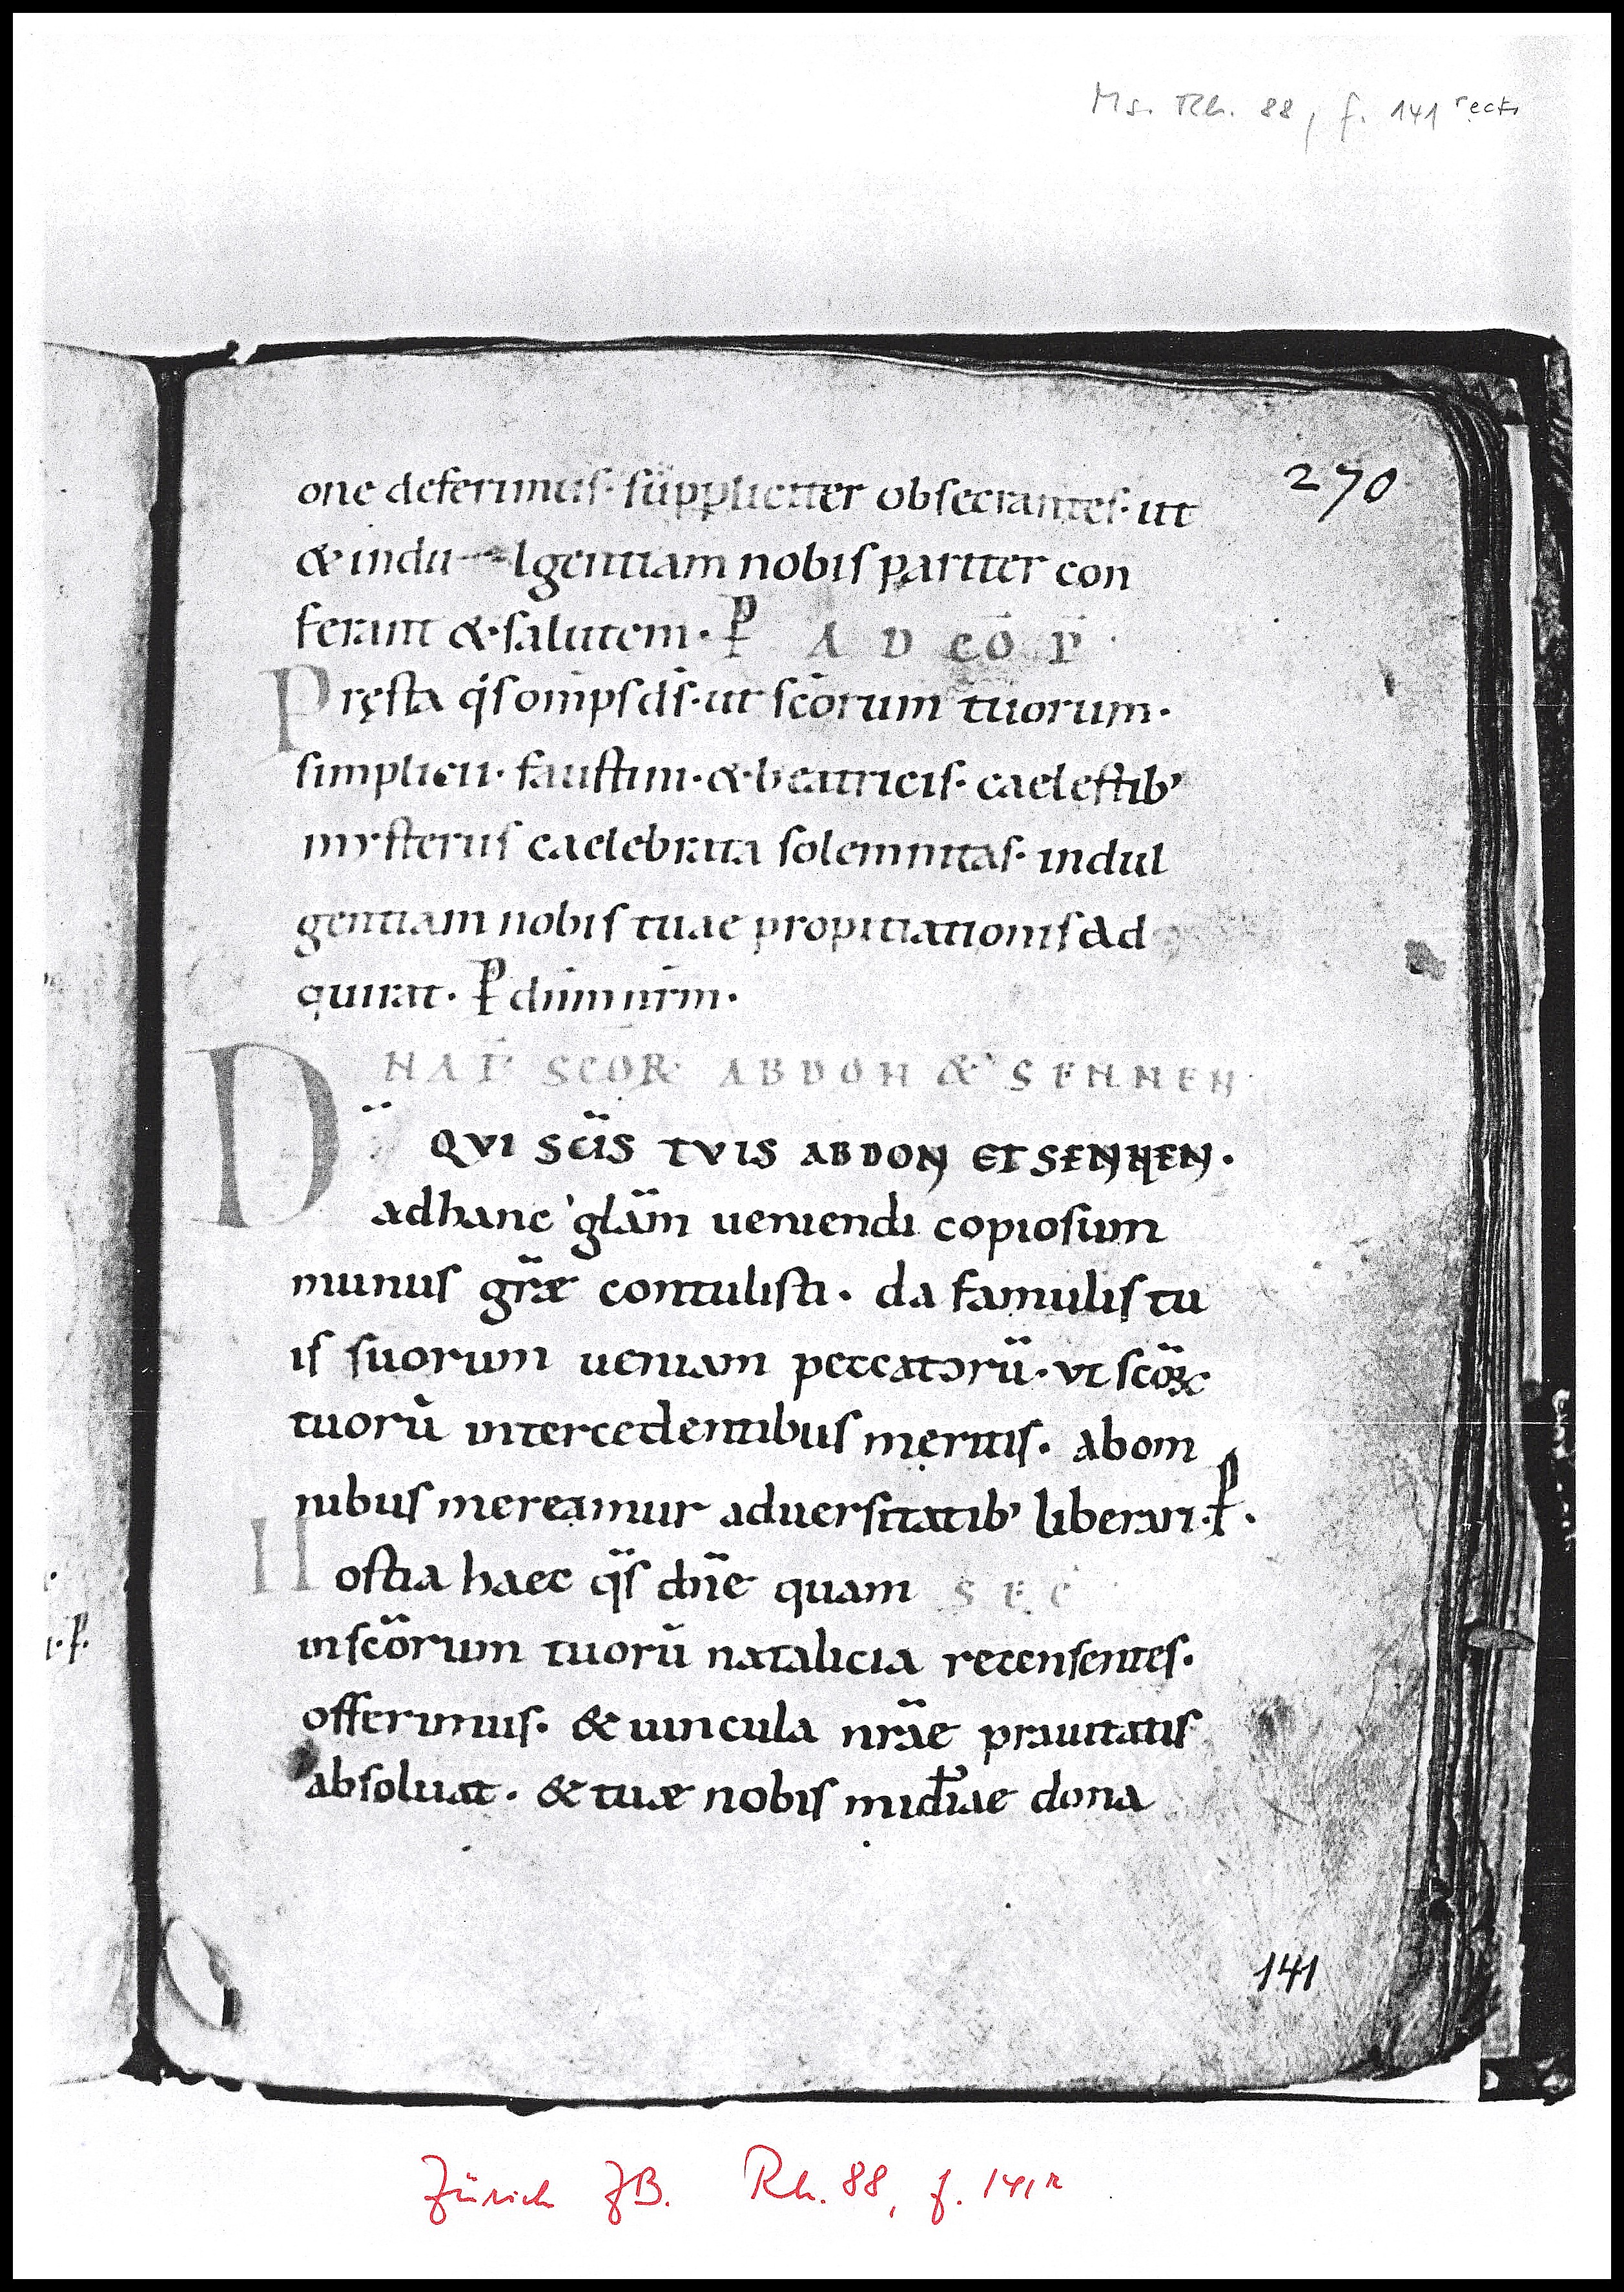 Ms. Rh. 88, f. 141 recto
270
one deferimus· suppliciter obsecrantes· ut
& indulgentiam nobis pariter con
ferant & salutem· P̄ AD CŌP̄
Pręsta q̄s omīps d̄s· ut sc̄orum tuorum·
simplicii· faustini· & beatricis· caelestib'
mysteriis caelebrata solemnitas· indul
gentiam nobis tuae propitiationis ad
quirat· P̄ dn̄m nr̄m·
NAT̄ SCŌR ABDON & SENNEN
D̄S QVI SC̄IS TVIS ABDON ET SENNEN·
ad hanc gl̄am ueniendi copiosum
munus gr̄æ contulisti· da famulis tu
is suorum ueniam peccatorū· vt sc̄oꝝ
tuorū intercedentibus meritis· ab om
nibus mereamur aduersitatib' liberari· P̄·
Hostia haec q̄s dn̄e quam SEC̄
in sc̄orum tuorū natalicia recensentes·
offerimus· & uincula nr̄ae prauitatis
absoluat· & tuæ nobis mid̄iae dona
141
Zürich ZB. Rh. 88, f. 141r